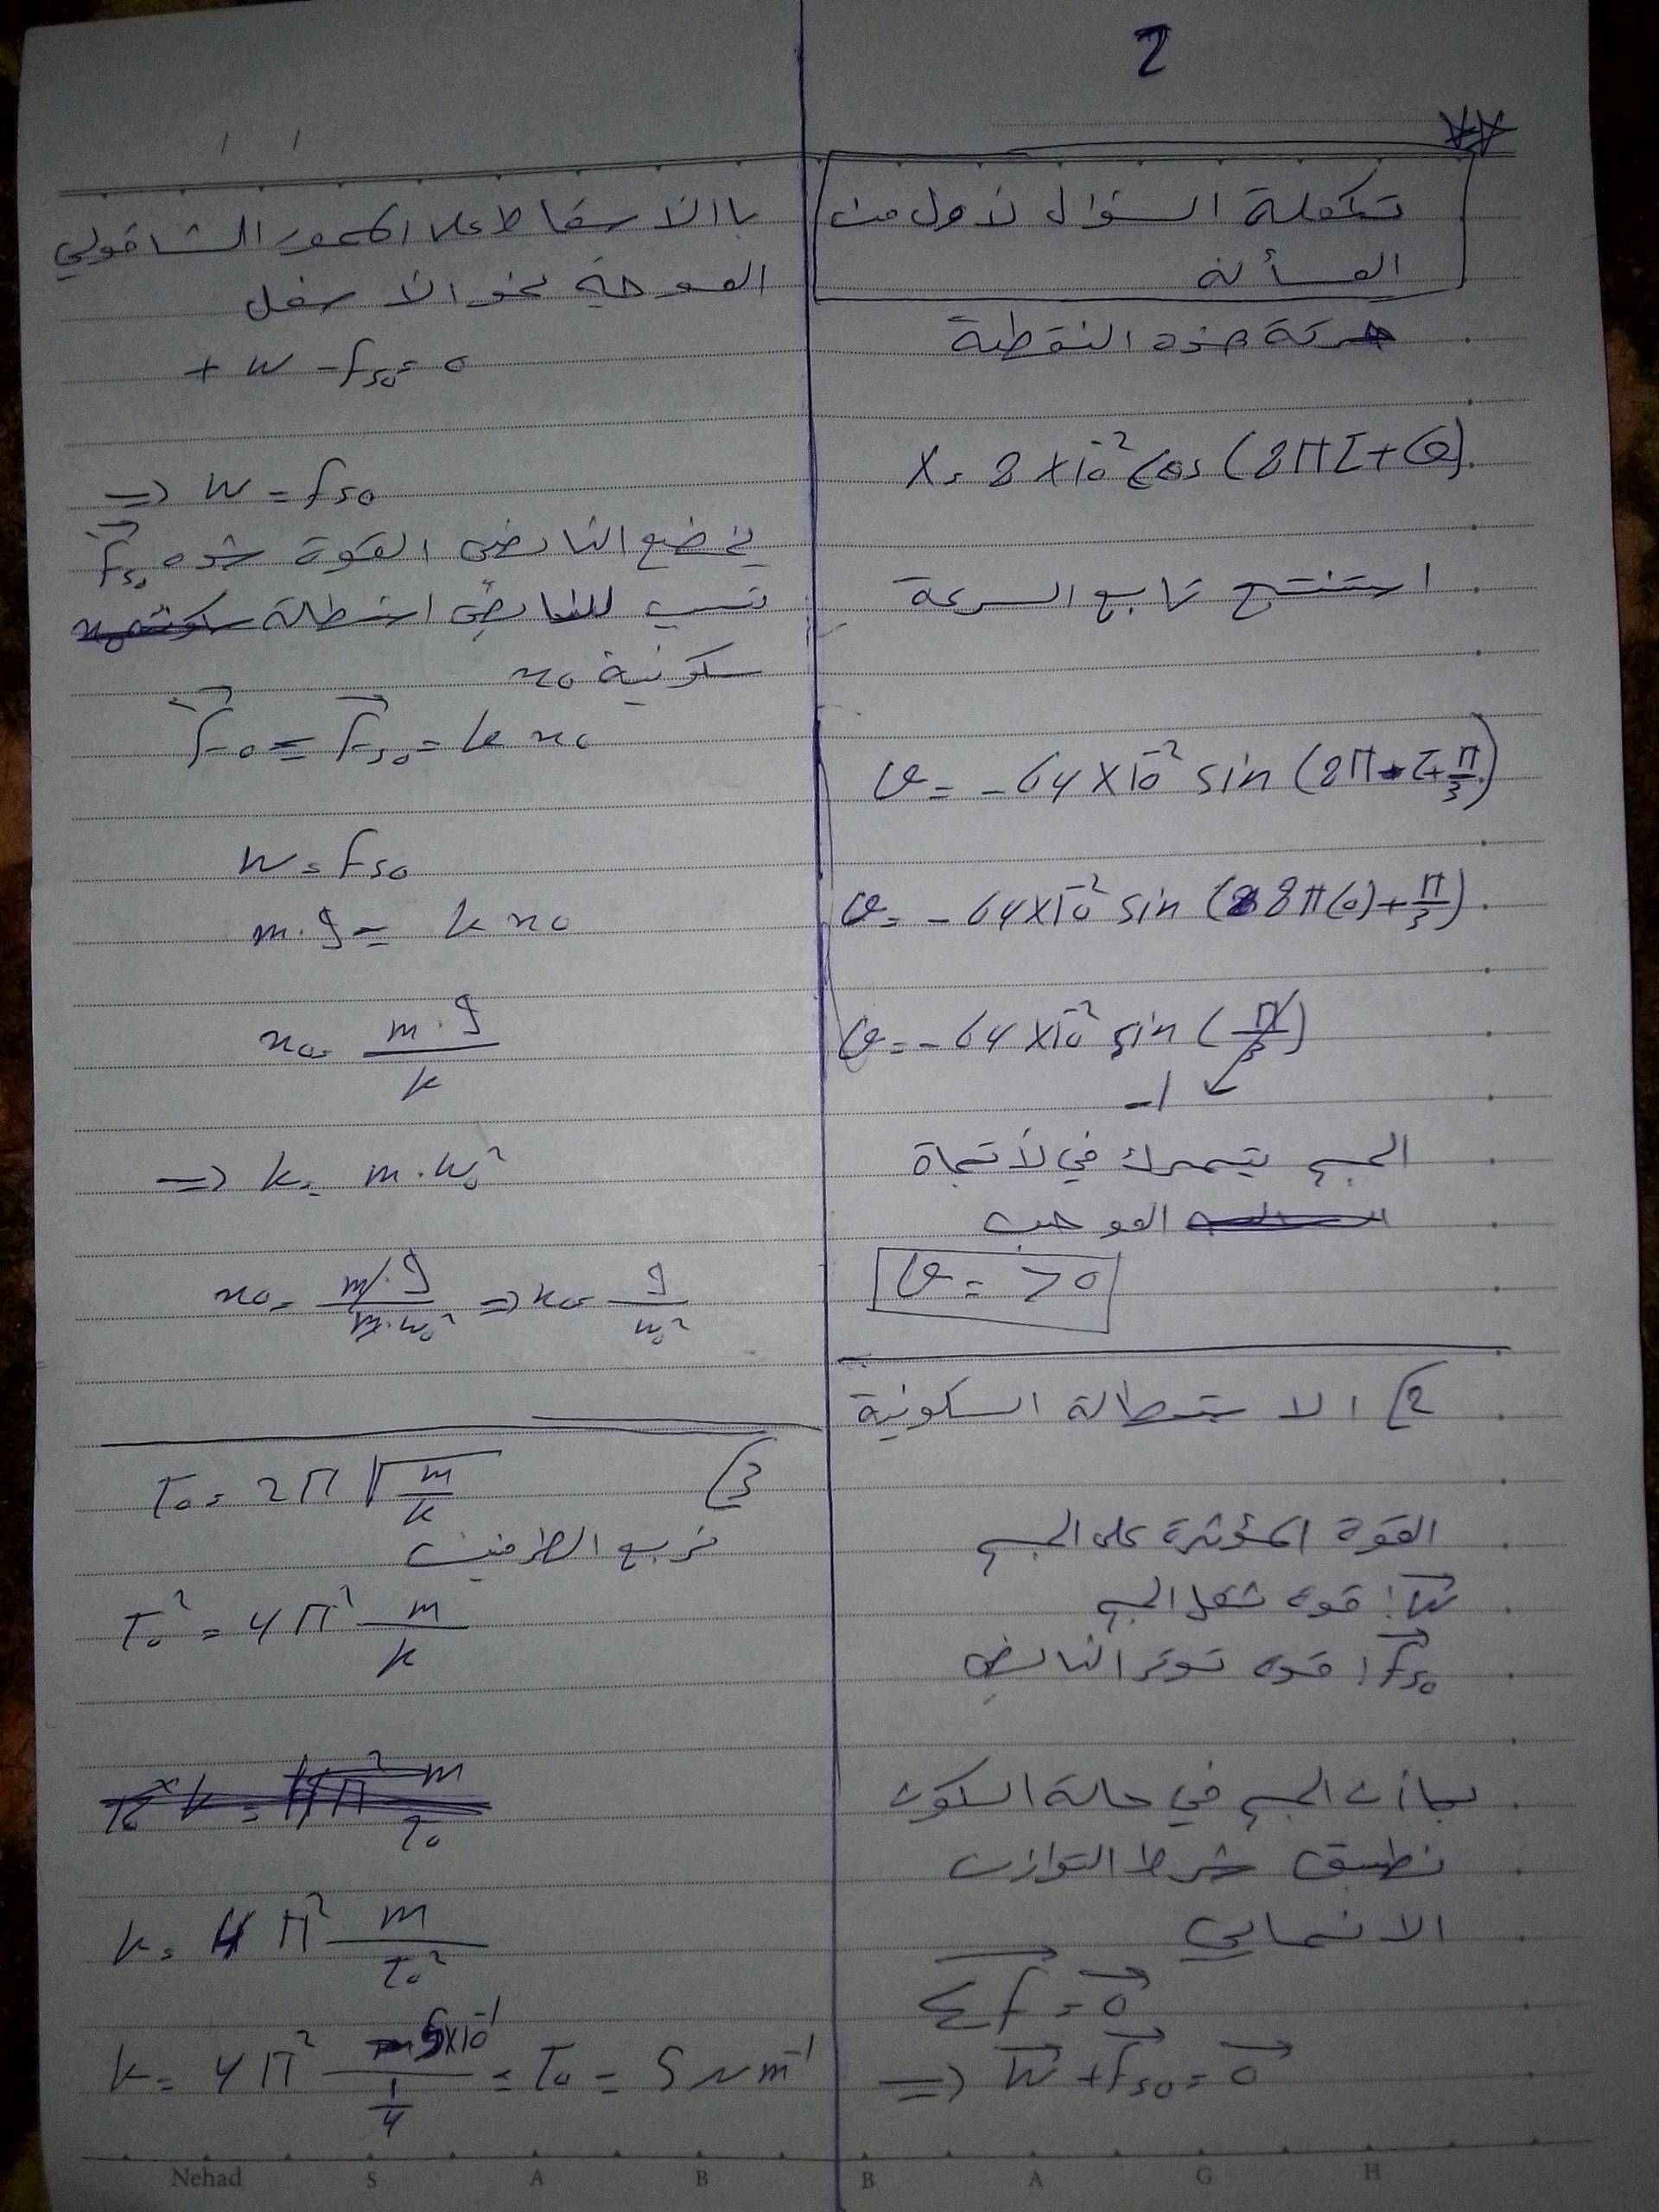 2
تكملة السؤال لأول من
المسألة
حركة هذه النقطة
X = 8 × 10⁻² cos (8πt + φ)
استنتج تابع السرعة
v = - 64 × 10⁻² sin (8π t + π/3)
v = - 64 × 10⁻² sin (8π(0) + π/3)
v = - 64 × 10⁻² sin (π/3)
-1
الجسم يتحرك في لأتجاة
الموجب
v = > 0
2) الاستطالة السكونية
القوة المؤثرة على الجسم
W⃗ : قوة ثقل الجسم
F⃗s₀ : قوة توتر النابض
بما أن الجسم في حالة السكون
نطبق شرط التوازن
الانسحابي
Σ F⃗ = 0⃗
⇒ W⃗ + F⃗s₀ = 0⃗
باالاسقاط على المحور الشاقولي
الموجية نحو الاسفل
+ W - Fs₀ = 0
⇒ W = Fs₀
يخضع النابض القوة شده F⃗s₀
تسبب للنابض استطالة
سكونية x₀
F⃗₀ = F⃗s₀ = k x₀
W = Fs₀
m . g = k x₀
x₀ = m . g / k
⇒ k = m . ω₀²
x₀ = m . g / m . ω₀² ⇒ x₀ = g / ω₀²
3) T₀ = 2π √(m/k)
نربع الطرفين
T₀² = 4π² m/k
k = 4π² m/T₀²
k = 4π² 5×10⁻¹ / (1/4) = T₀ = 5 N m⁻¹
Nehad S A B B A G H